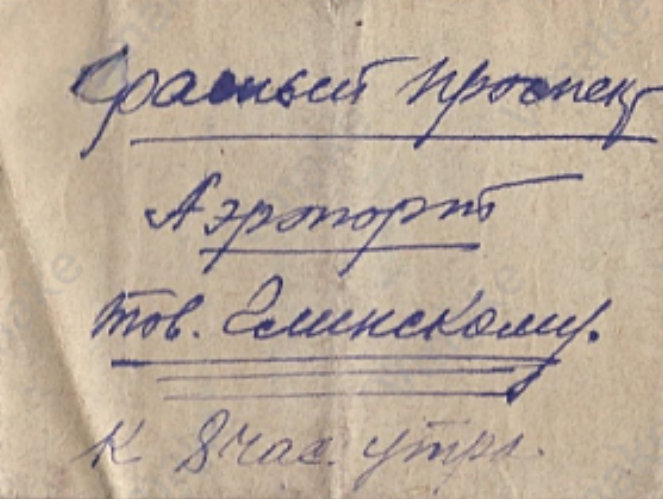 Красный проспект
Аэропорт
тов. Глинскому.
к 8 час. утра.